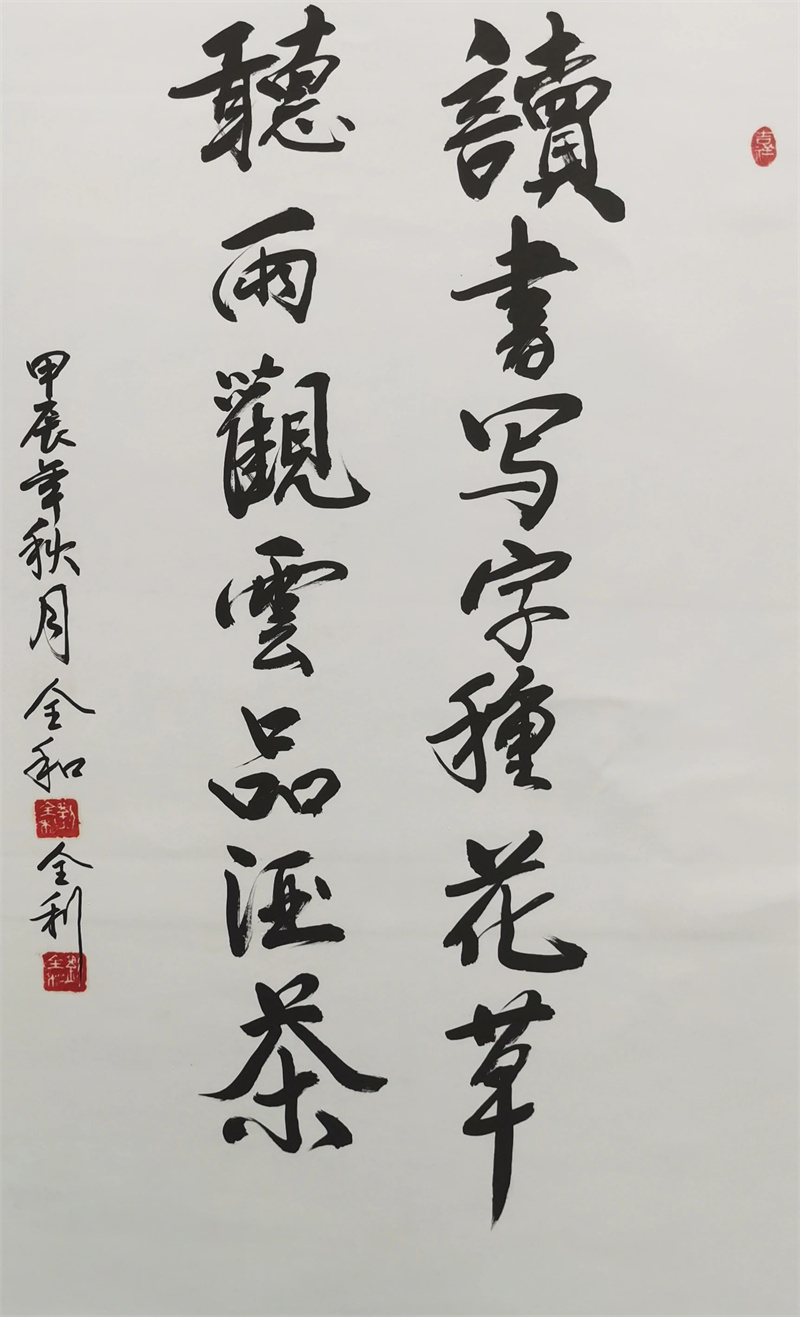 讀書写字種花草
聽雨觀雲品酒茶
甲辰年秋月全和
全利
吉祥